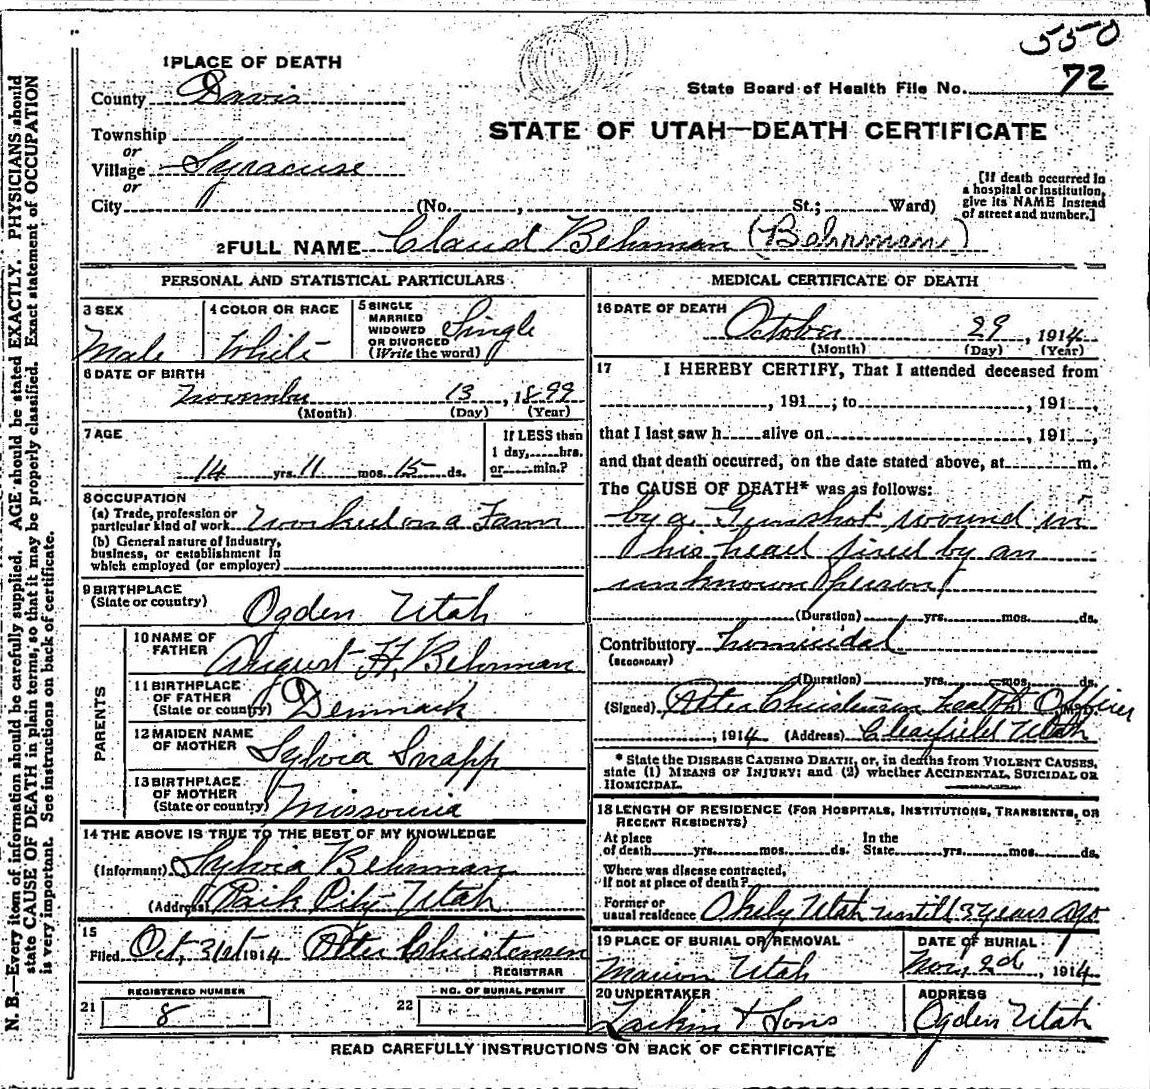 550
72
1 PLACE OF DEATH
State Board of Health File No.
County Davis
STATE OF UTAH—DEATH CERTIFICATE
Township
or
Village Syracuse
or
City (No. , St.; Ward)
[If death occurred in
a hospital or institution,
give its NAME instead
of street and number.]
2 FULL NAME Claud Behman (Behrman)
PERSONAL AND STATISTICAL PARTICULARS
3 SEX
Male
4 COLOR OR RACE
White
5 SINGLE
MARRIED
WIDOWED
OR DIVORCED
(Write the word)
Single
6 DATE OF BIRTH
November 13, 1899
(Month) (Day) (Year)
7 AGE
14 yrs. 11 mos. 15 ds.
If LESS than
1 day, hrs.
or min.?
8 OCCUPATION
(a) Trade, profession or
particular kind of work Worked on a Farm
(b) General nature of Industry,
business, or establishment in
which employed (or employer)
9 BIRTHPLACE
(State or country)
Ogden Utah
PARENTS
10 NAME OF
FATHER
August H. Behrman
11 BIRTHPLACE
OF FATHER
(State or country)
Denmark
12 MAIDEN NAME
OF MOTHER
Sylvia Snapp
13 BIRTHPLACE
OF MOTHER
(State or country)
Missouria
14 THE ABOVE IS TRUE TO THE BEST OF MY KNOWLEDGE
(Informant) Sylvia Behrman
(Address) Park City Utah
15
Filed Oct, 31st 1914 Peter Christensen
REGISTRAR
21 REGISTERED NUMBER
8
22 NO. OF BURIAL PERMIT
MEDICAL CERTIFICATE OF DEATH
16 DATE OF DEATH
October 29, 1914
(Month) (Day) (Year)
17 I HEREBY CERTIFY, That I attended deceased from
, 191 ; to , 191 ,
that I last saw h alive on , 191 ,
and that death occurred, on the date stated above, at m.
The CAUSE OF DEATH* was as follows:
by a Gunshot wound in
his head fired by an
unknown person
(Duration) yrs. mos. ds.
Contributory homicidal
(SECONDARY)
(Duration) yrs. mos. ds.
(Signed) Peter Christensen health Officer
, 1914 (Address) Clearfield Utah
* State the DISEASE CAUSING DEATH, or, in deaths from VIOLENT CAUSES,
state (1) MEANS OF INJURY; and (2) whether ACCIDENTAL, SUICIDAL OR
HOMICIDAL.
18 LENGTH OF RESIDENCE (FOR HOSPITALS, INSTITUTIONS, TRANSIENTS, OR
RECENT RESIDENTS)
At place
of death yrs. mos. ds.
In the
State yrs. mos. ds.
Where was disease contracted,
if not at place of death?
Former or
usual residence Utah until 3 years ago
19 PLACE OF BURIAL OR REMOVAL
Marion Utah
DATE OF BURIAL
Nov, 2d, 1914
20 UNDERTAKER
Larkin & Sons
ADDRESS
Ogden Utah
READ CAREFULLY INSTRUCTIONS ON BACK OF CERTIFICATE
N. B.—Every item of information should be carefully supplied. AGE should be stated EXACTLY. PHYSICIANS should
state CAUSE OF DEATH in plain terms, so that it may be properly classified. Exact statement of OCCUPATION
is very important. See instructions on back of certificate.